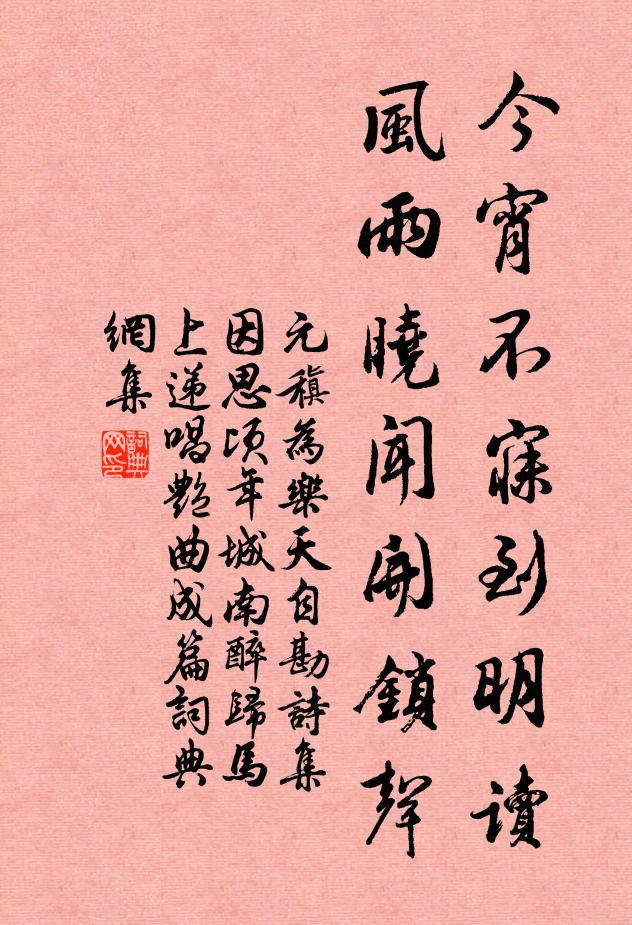 今宵不寐到明讀
風雨曉聞開鎖聲
元稹為樂天自勘詩集
因思頃年城南醉歸馬
上遞唱艷曲成篇詞典
網集
詞典
网印